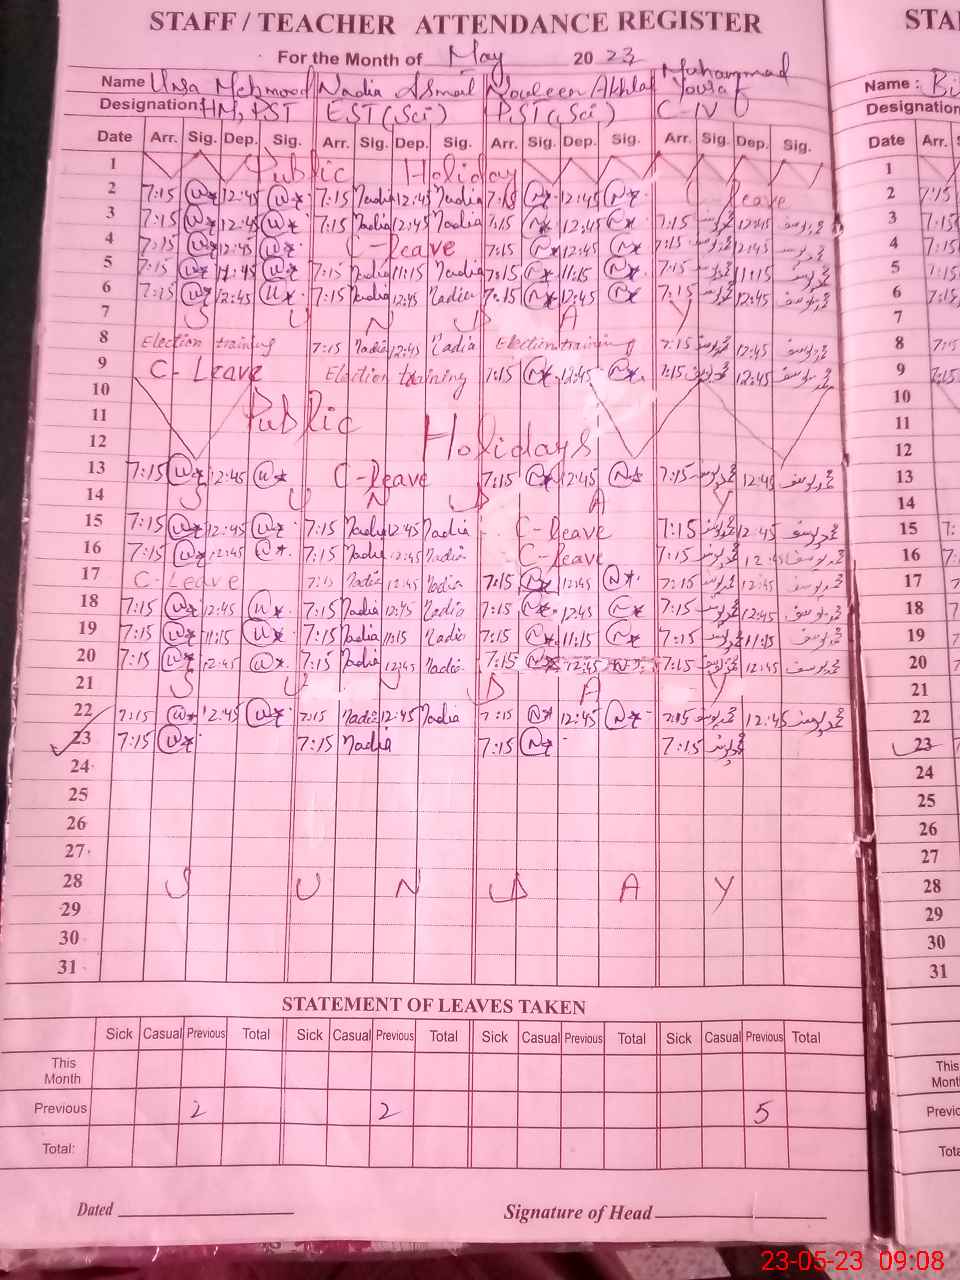 STAFF / TEACHER ATTENDANCE REGISTER
STA
For the Month of May 2023
Name Uzja Mehmood Nadia Ismail Nouleen Akhlaf Muhammad Yousaf
Name : Bi
Designation HM, PST EST (Sci) PST (Sci) C-IV
Designation
Date Arr. Sig. Dep. Sig. Arr. Sig. Dep. Sig. Arr. Sig. Dep. Sig. Arr. Sig. Dep. Sig.
Date Arr. S
1 Public Holiday
1
2 7:15 12:45 7:15 Nadia 12:45 Nadia 7:15 N* 12:45 N* C leave
2 7:15
3 7:15 12:45 7:15 Nadia 12:45 Nadia 7:15 N* 12:45 N* 7:15 محمد یوسف 12:45 محمد یوسف
3 7:15
4 7:15 12:45 C-leave 7:15 N* 12:45 N* 7:15 محمد یوسف 12:45 محمد یوسف
4 7:15
5 7:15 11:45 7:15 Nadia 11:15 Nadia 7:15 N* 11:15 N* 7:15 محمد یوسف 11:15 محمد یوسف
5 7:15
6 7:15 12:45 7:15 Nadia 12:45 Nadia 7:15 N* 12:45 N* 7:15 محمد یوسف 12:45 محمد یوسف
6 7:15
7 S U N D A Y
7
8 Election training 7:15 Nadia 12:45 Nadia Election training 7:15 محمد یوسف 12:45 محمد یوسف
8 7:15
9 C-Leave Election training 7:15 N* 12:45 N* 7:15 محمد یوسف 12:45 محمد یوسف
9 7:15
10
10
11 Public
11
12 Holidays
12
13 7:15 12:45 C-leave 7:15 N* 12:45 N* 7:15 محمد یوسف 12:45 محمد یوسف
13
14 S U N D A Y
14
15 7:15 12:45 7:15 Nadia 12:45 Nadia C-leave 7:15 محمد یوسف 12:45 محمد یوسف
15 7:
16 7:15 12:45 7:15 Nadia 12:45 Nadia C-leave 7:15 محمد یوسف 12:45 محمد یوسف
16 7
17 C-Leave 7:15 Nadia 12:45 Nadia 7:15 N* 12:45 N* 7:15 محمد یوسف 12:45 محمد یوسف
17
18 7:15 12:45 7:15 Nadia 12:45 Nadia 7:15 N* 12:45 N* 7:15 محمد یوسف 12:45 محمد یوسف
18
19 7:15 11:15 7:15 Nadia 11:15 Nadia 7:15 N* 11:15 N* 7:15 محمد یوسف 11:15 محمد یوسف
19
20 7:15 12:45 7:15 Nadia 12:45 Nadia 7:15 N* 12:45 N* 7:15 محمد یوسف 12:45 محمد یوسف
20
21 S U N D A Y
21
22 7:15 12:45 7:15 Nadia 12:45 Nadia 7:15 N* 12:45 N* 7:15 محمد یوسف 12:45 محمد یوسف
22
23 7:15 7:15 Nadia 7:15 N* 7:15 محمد یوسف
23
24
24
25
25
26
26
27
27
28 S U N D A Y
28
29
29
30
30
31
31
STATEMENT OF LEAVES TAKEN
Sick Casual Previous Total Sick Casual Previous Total Sick Casual Previous Total Sick Casual Previous Total
This Month
This
Mont
Previous 2 2 5
Previo
Total:
Tota
Dated
Signature of Head
23-05-23 09:08